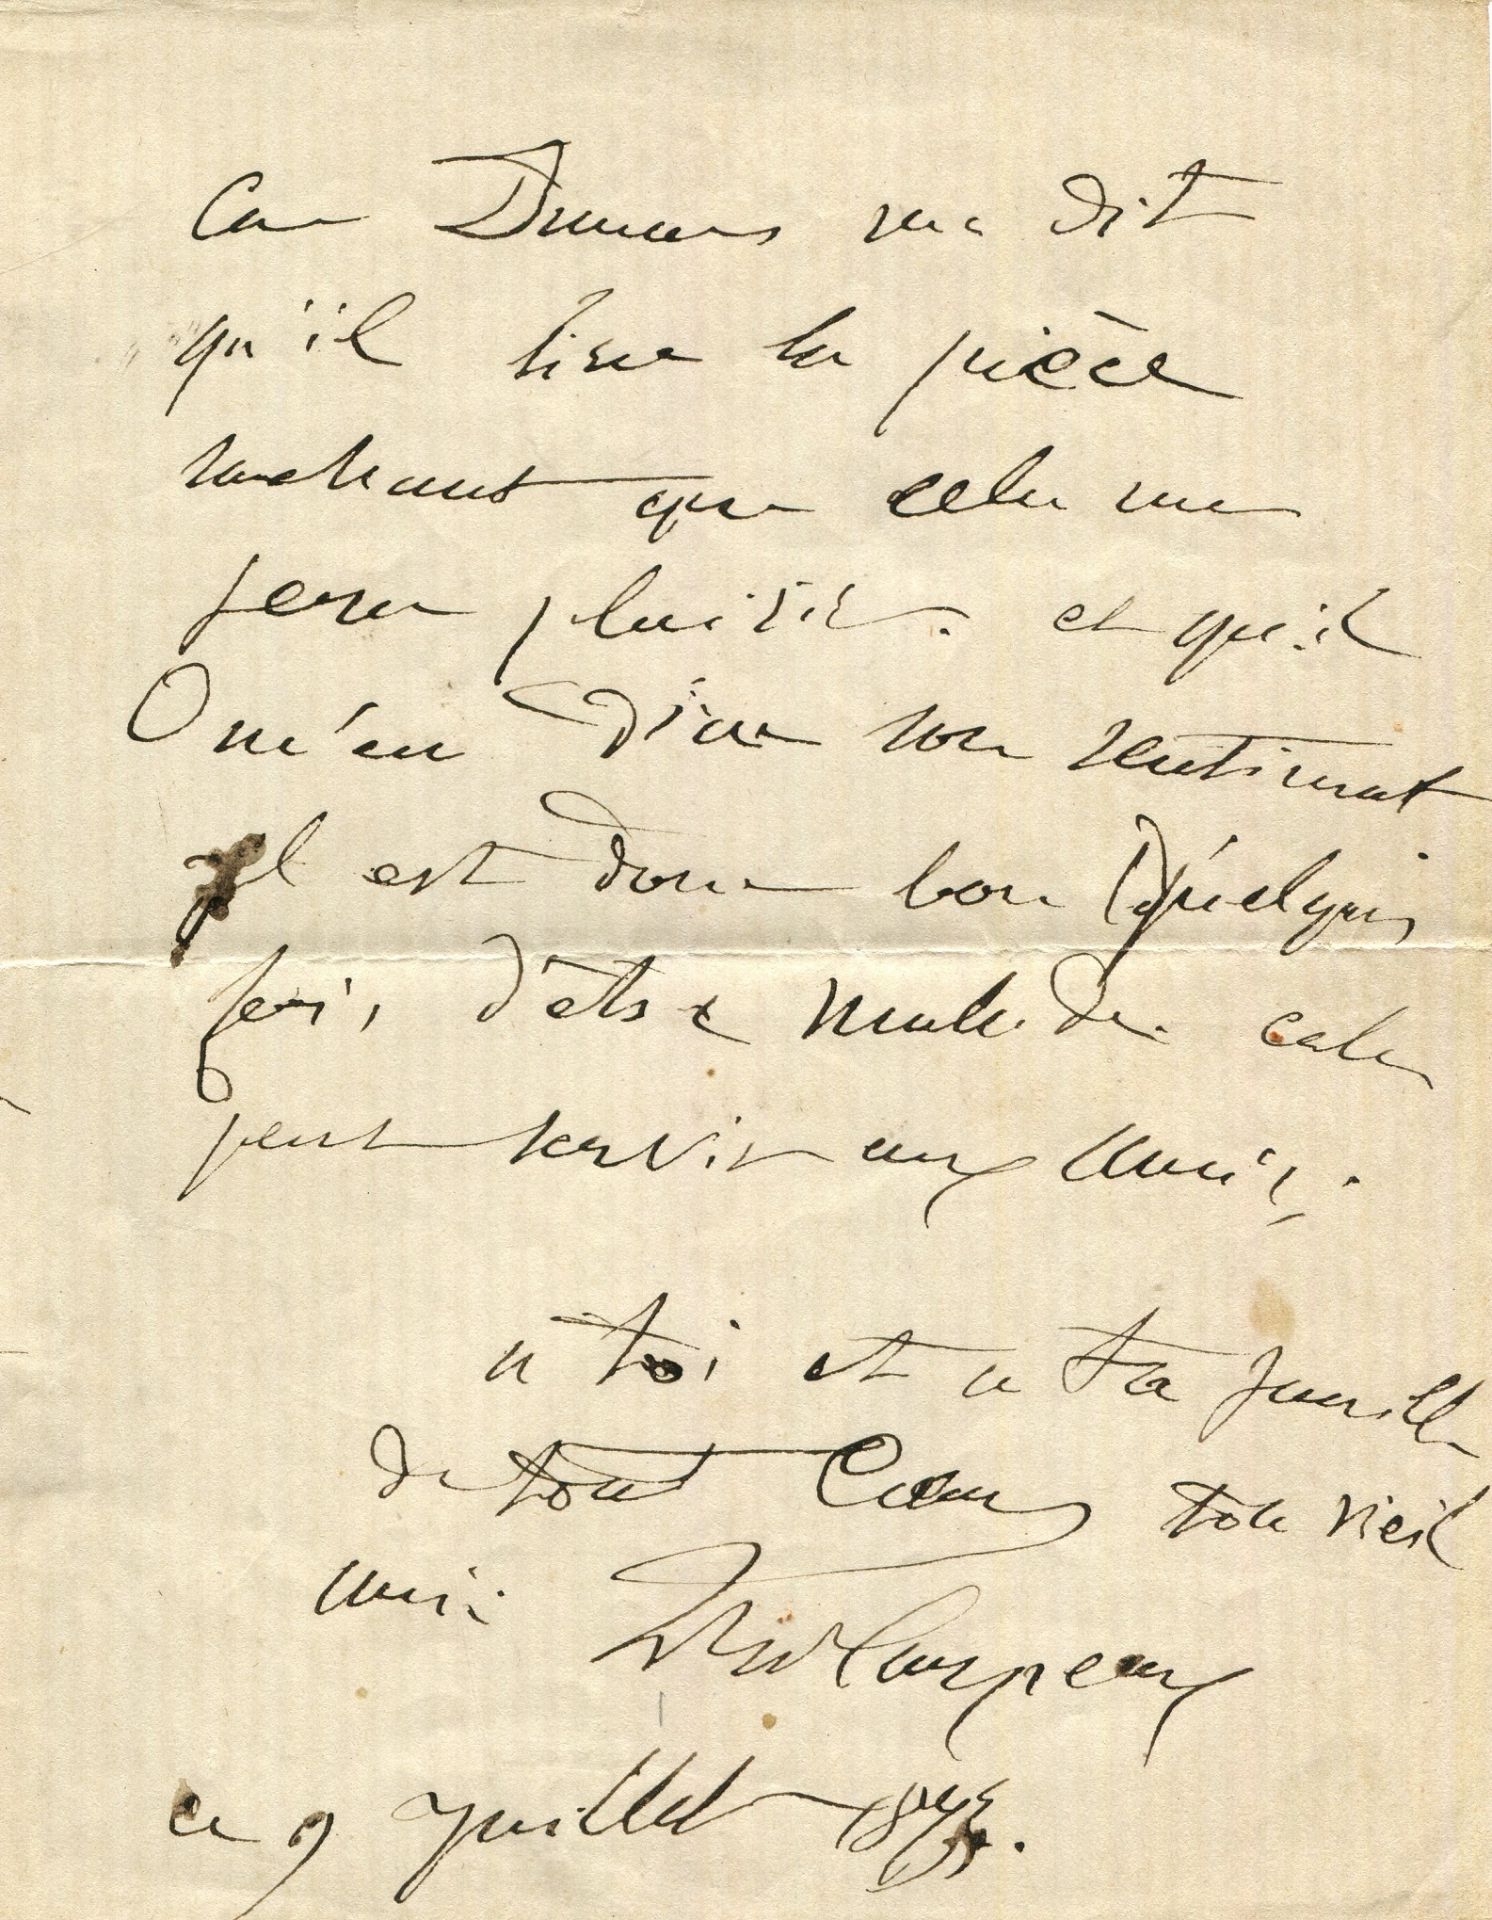 Car Dumas m'a dit
qu'il lira la pièce
sachant que cela me
fera plaisir. et qu'il
m'en dira son sentiment
Il est donc bon quelques
fois d'être malade. cela
peut servir aux amis.
a toi et a ta famille
de tout Coeur ton vieil
ami. Carpeaux
ce 9 juillet 1875.